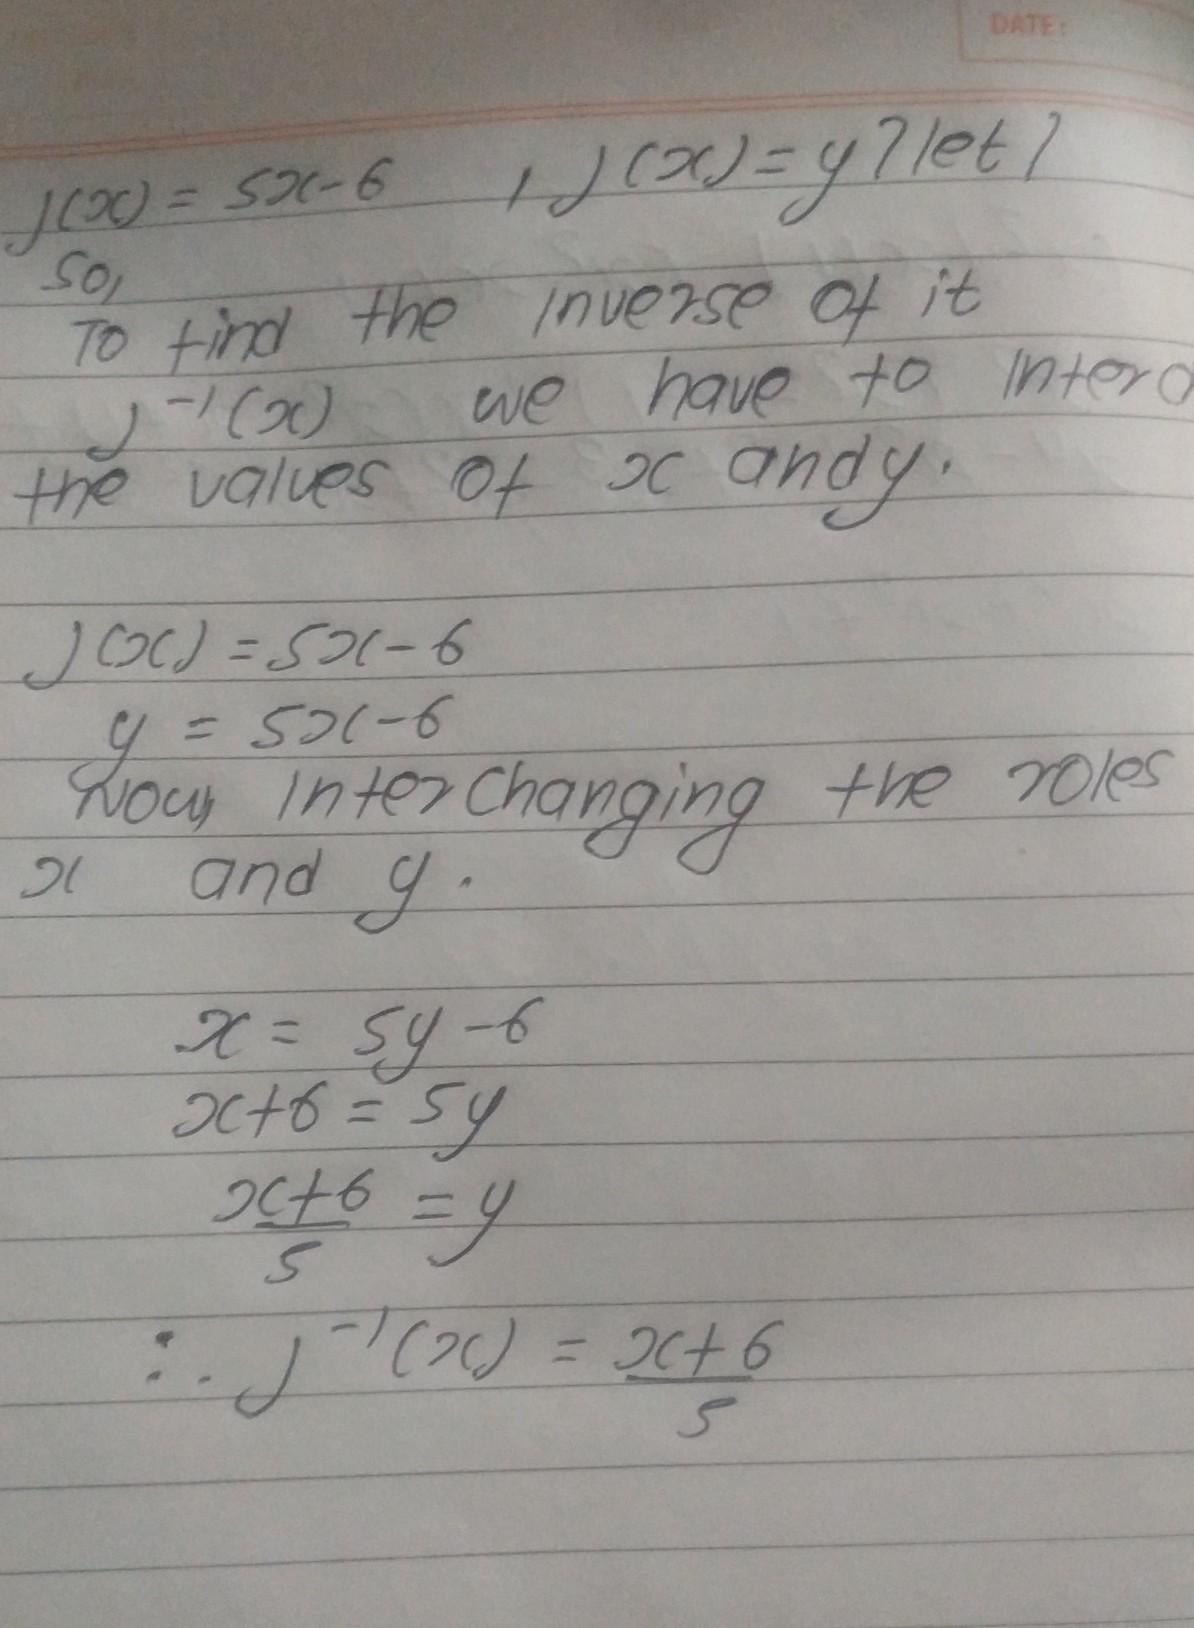 DATE:
j(x) = 5x-6 , j(x) = y {let}
so,
To find the inverse of it
j⁻¹(x) we have to interc
the values of x and y.
j(x) = 5x-6
y = 5x-6
Now, Interchanging the roles
x and y.
x = 5y-6
x+6 = 5y
x+6/5 = y
∴ j⁻¹(x) = x+6/5